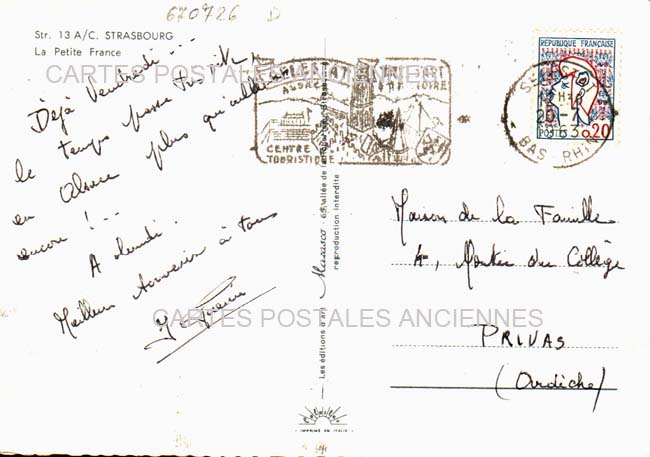 670726 D
Str. 13 A/C. STRASBOURG
La Petite France
CARTES POSTALES ANCIENNES
Déjà Vendredi...
le temps passe très vite
en Alsace plus qu'ailleurs
encore !...
A lundi.
Meilleur souvenir à tous
ALSACE
CENTRE
TOURISTIQUE
REPUBLIQUE FRANÇAISE
POSTES 0,20
20-7
63
BAS-RHIN
Les éditions d'art
reproduction interdite
Maison de la Famille
4, Montée du Collège
CARTES POSTALES ANCIENNES
PRIVAS
(Ardèche)
IMPRIMÉ EN ITALIE